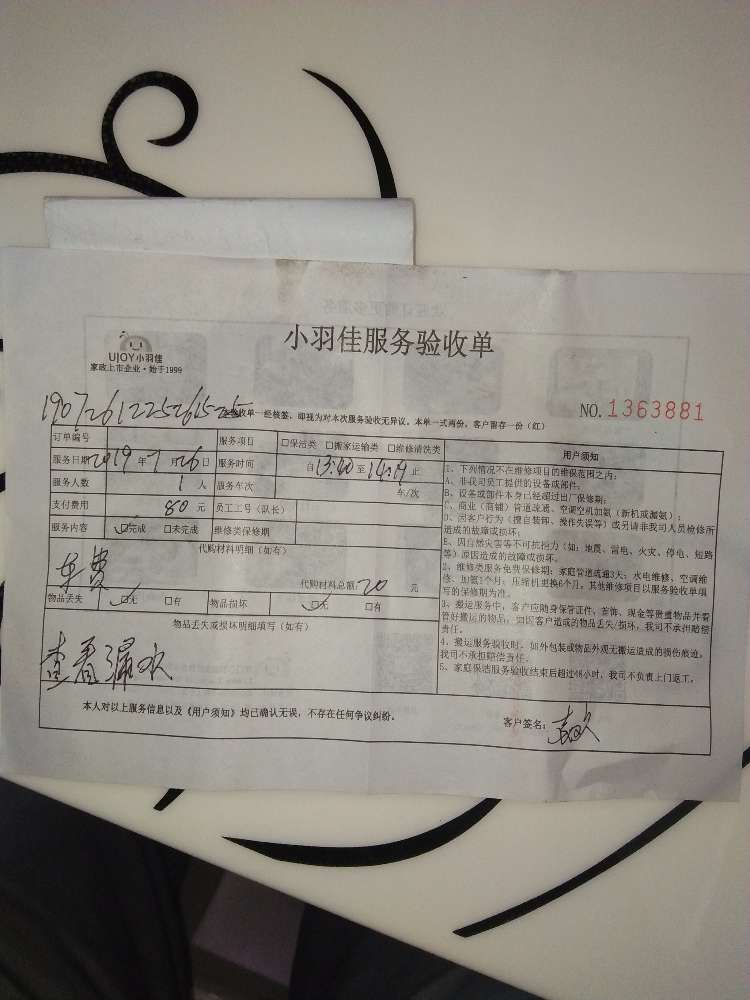 小羽佳服务验收单
UJOY小羽佳
家政上市企业·始于1999
验收单一经核签，即视为对本次服务验收无异议。本单一式两份，客户留存一份（红）
NO. 1363881
订单编号 服务项目 □保洁类 □搬家运输类 □维修清洗类
服务日期 2019年7月26日 服务时间 自13:40至14:19止
服务人数 1人 服务车次 车/次
支付费用 80元 员工工号（队长）
服务内容 ☑完成 □未完成 维修类保修期
代购材料明细（如有）
车费
代购材料总额：20元
物品丢失 ☑无 □有 物品损坏 ☑无 □有
物品丢失或损坏明细填写（如有）
查看漏水
用户须知
1、下列情况不在维修项目的维保范围之内：
A、非我司员工提供的设备或部件；
B、设备或部件本身已经超过出厂保修期；
C、商业（商铺）管道疏通、空调空机加氨（新机或漏氨）；
D、因客户行为（擅自装卸、操作失误等）或另请非我司人员检修所
造成的故障或损坏。
E、因自然灾害等不可抗拒力（如：地震、雷电、火灾、停电、短路
等）原因造成的故障或损坏。
2、维修类服务免费保修期：家庭管道疏通3天；水电维修、空调维
修、加氨1个月；压缩机更换6个月，其他维修项目以服务验收单填
写的保修期为准。
3、搬运服务中，客户应随身保管证件、首饰、现金等贵重物品并看
管好搬运的物品，如因客户造成的物品丢失/损坏，我司不承担赔偿
责任。
4、搬运服务验收时，如外包装或物品外观无搬运造成的损伤痕迹，
我司不承担赔偿责任。
5、家庭保洁服务验收结束后超过48小时，我司不负责上门返工。
本人对以上服务信息以及《用户须知》均已确认无误，不存在任何争议纠纷。
客户签名：